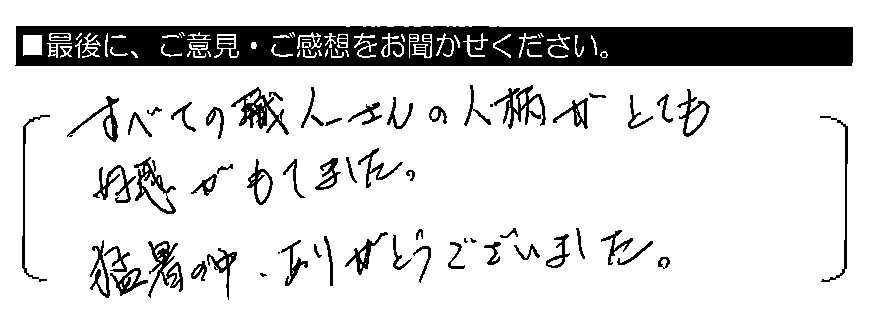 ■最後に、ご意見・ご感想をお聞かせください。
すべての職人さんの人柄がとても
好感がもてました。
猛暑の中、ありがとうございました。